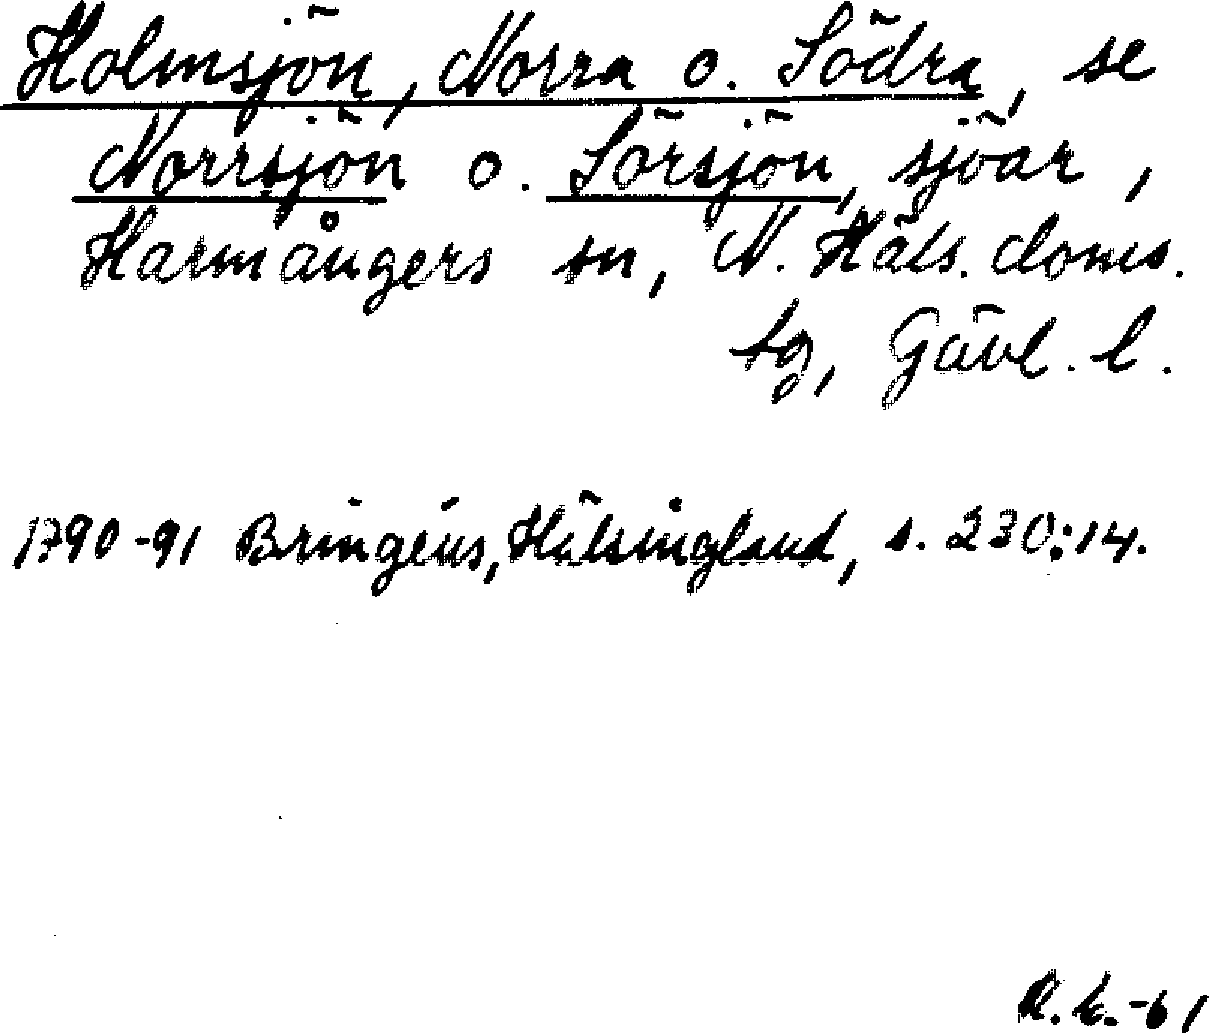 Holmsjön, Norra o. Södra, se
Norrsjön o. Sörsjön, sjöar,
Harmångers sn, N. Häls. doms.
tg, Gävl. l.
1790-91 Bringéus, Hälsingland, s. 230:14.
R.E.-61